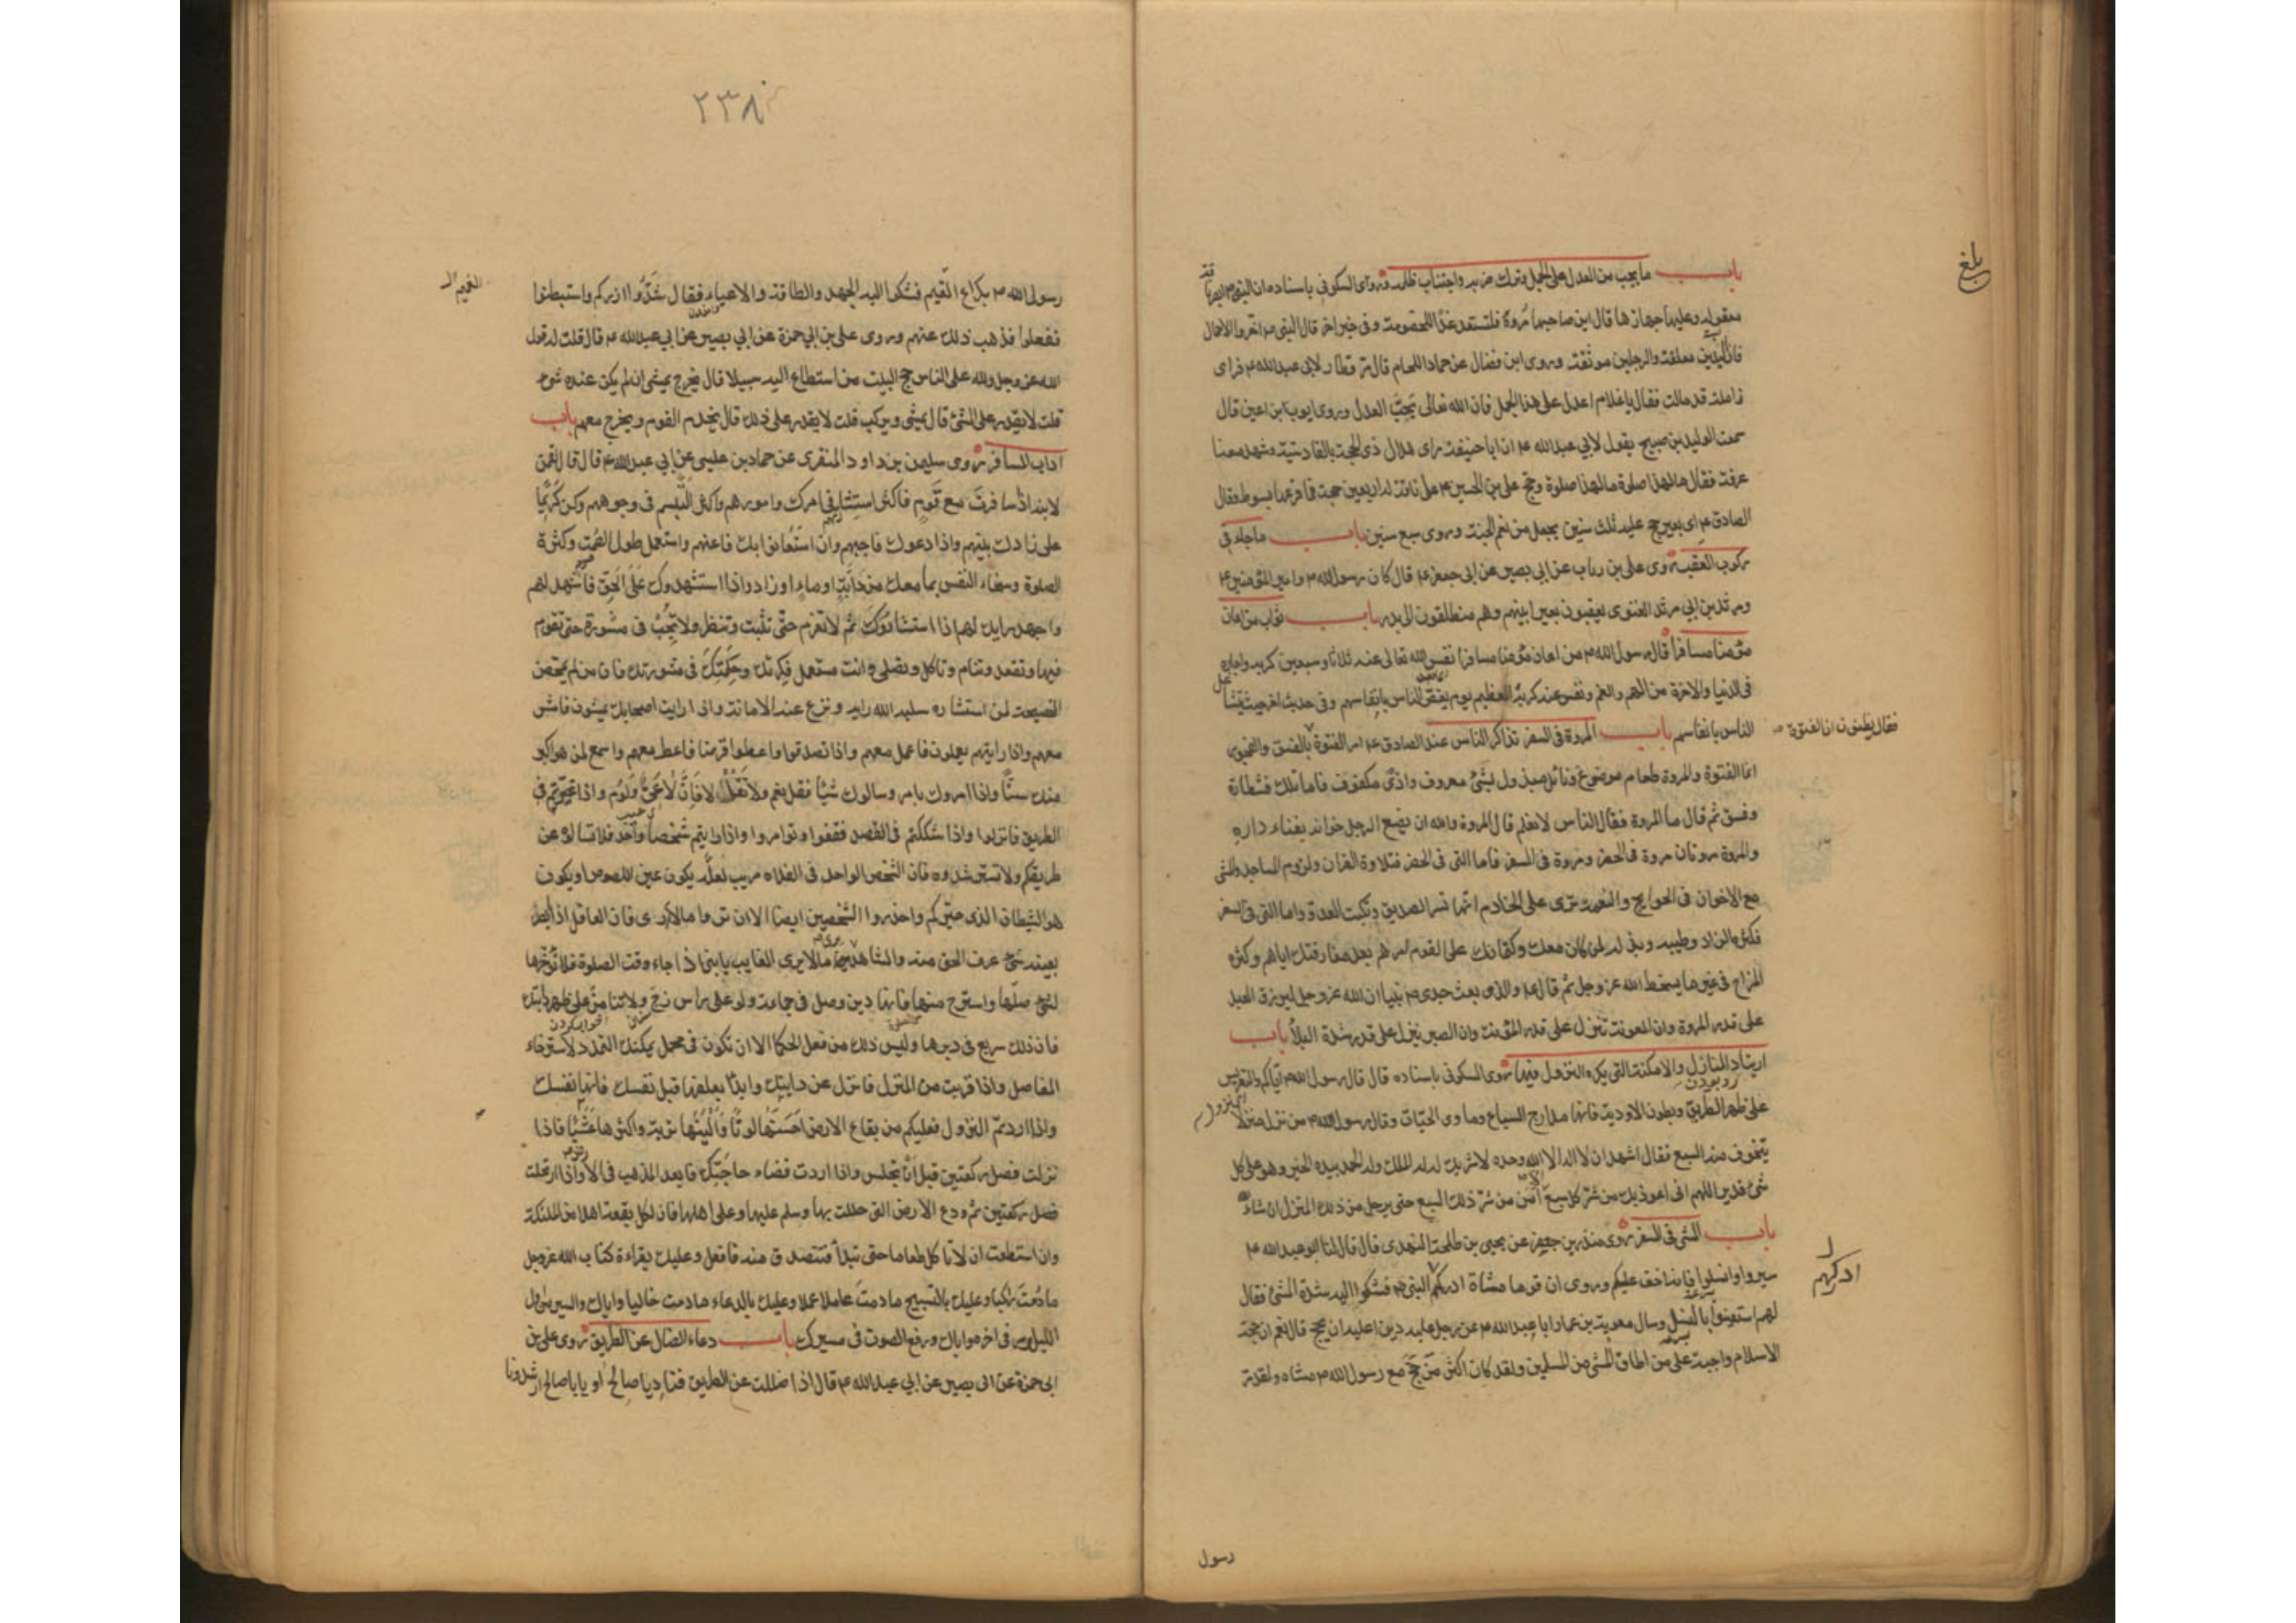 بلغ
باب ما يجب من العدل على الجمل وترك ضربه واجتناب ظلمه روى السكونى باسناده ان النبى ابصر ناقة
معقولة وعليها جهازها فقال اين صاحبها مروه فليستعد غدا للخصومة وفى خبر اخر قال النبى اخروا الاحمال
فان اليدين معلقة والرجلين موثقة وروى ابن فضال عن حماد اللحام قال مر قطار لابى عبدالله فراى
زاملة قد مالت فقال يا غلام اعدل على هذا الجمل فان الله تعالى يحب العدل وروى ايوب ابن اعين قال
سمعت الوليد بن صبيح يقول لابي عبدالله ان ابا حنيفة راى هلال ذى الحجة بالقادسية وشهد معنا
عرفة فقال ما لهذا صلوة ما لهذا صلوة وحج على بن الحسين على ناقة له اربعين حجة فما قرعها بسوط فقال
الصادق اى بعير حج عليه ثلث سنين يجعل من نعم الجنة وروى سبع سنين باب ما جاء فى
ركوب العقب روى على بن رباب عن ابي بصير عن ابى جعفر قال كان رسول الله وامير المؤمنين
ومرثد بن ابي مرثد الغنوى يعقبون بعيرا بينهم وهم منطلقون الى بدر باب ثواب من اعان
مؤمنا مسافرا قال رسول الله من اعان مؤمنا مسافرا نفس الله تعالى عنه ثلاثا وسبعين كربة واجاره
فى الدنيا والاخرة من الهم والغم ونفس عنه كربه العظيم يوم يغص الناس بانفاسهم وفى حديث اخر حيث يتشاغل
الناس بانفاسهم باب المروة فى السفر تذاكر الناس عند الصادق امر الفتوة بالفسق والفجور
فقال تظنون ان الفتوة
انما الفتوة والمروة طعام موضوع ونائل مبذول بشئ معروف واذى مكفوف فاما تلك فشطارة
وفسق ثم قال ما المروة فقال الناس لا نعلم قال المروة والله ان يضع الرجل خوانه بفناء داره
والمروة مروتان مروة فى الحضر ومروة فى السفر فاما التى فى الحضر فتلاوة القران ولزوم المساجد والمشى
مع الاخوان فى الحوايج والنعمة ترى على الخادم انها تسر الصديق وتكبت العدو واما التى فى السفر
فكثرة الزاد وطيبه وبذله لمن كان معك وكتمانك على القوم امرهم بعد مفارقتك اياهم وكثرة
المزاح فى غير ما يسخط الله عز وجل ثم قال والذى بعث جدى نبيا ان الله عز وجل ليرزق العبد
على قدر المروة وان المعونة تنزل على قدر المؤنة وان الصبر ينزل على قدر شدة البلاء باب
ارتياد المنازل والامكنة التى يكره النزول فيها روى السكونى باسناده قال قال رسول الله اياكم والتعريس
على ظهر الطريق وبطون الاودية فانها مدارج السباع وماوى الحيات وقال رسول الله من نزل منزلا
يتخوف منه السبع فقال اشهد ان لا اله الا الله وحده لا شريك له له الملك وله الحمد بيده الخير وهو على كل
شئ قدير اللهم انى اعوذ بك من شر كل سبع امن من شر ذلك السبع حتى يرحل من ذلك المنزل ان شاء الله
باب المشى فى السفر روى منذر بن جيفر عن يحيى بن طلحة النهدى قال قال لنا ابو عبدالله
سيروا وانسلوا فانه اخف عليكم وروى ان قوما مشاة ادركهم النبى فشكوا اليه شدة المشى فقال
ادركهم
لهم استعينوا بالنسل وسال معوية بن عمار ابا عبدالله عن رجل عليه دين اعليه ان يحج قال نعم ان حجة
الاسلام واجبة على من اطاق المشى من المسلمين ولقد كان اكثر من حج مع رسول الله مشاة ولقد مر
رسول
٢٣٨
رسول الله بكراع الغميم فشكوا اليه الجهد والطاقة والاعياء فقال شدوا ازركم واستبطنوا
الغميم
ففعلوا فذهب ذلك عنهم وروى على بن ابي حمزة عن ابي بصير عن ابي عبدالله قال قلت له قول
الله عز وجل ولله على الناس حج البيت من استطاع اليه سبيلا قال يخرج يمشى ان لم يكن عنده شئ
قلت لا يقدر على المشى قال يمشى ويركب قلت لا يقدر على ذلك قال يخدم القوم ويخرج معهم باب
اداب المسافر روى سليمن بن داود المنقرى عن حماد بن عيسى عن ابي عبدالله قال قال لقمن
لابنه اذا سافرت مع قوم فاكثر استشارتهم فى امرك وامورهم واكثر التبسم فى وجوههم وكن كريما
على زادك بينهم واذا دعوك فاجبهم وان استعانوا بك فاعنهم واستعمل طول الصمت وكثرة
الصلوة وسخاء النفس بما معك من دابة او ماء او زاد واذا استشهدوك على الحق فاشهد لهم
واجهد رايك لهم اذا استشاروك ثم لا تعزم حتى تثبت وتنظر ولا تجب فى مشورة حتى تقوم
فيها وتقعد وتنام وتاكل وتصلى وانت مستعمل فكرتك وحكمتك فى مشورتك فان من لم يمحض
النصيحة لمن استشاره سلبه الله رايه ونزع عنه الامانة واذا رايت اصحابك يمشون فامش
معهم واذا رايتهم يعملون فاعمل معهم واذا تصدقوا واعطوا قرضا فاعط معهم واسمع لمن هو اكبر
منك سنا واذا امروك بامر وسالوك شيئا فقل نعم ولا تقل لا فان لا عى ولوم واذا تحيرتم فى
الطريق فانزلوا واذا شككتم فى القصد فقفوا وتوامروا واذا رايتم شخصا واحدا فلا تسالوه عن
طريقكم ولا تسترشدوه فان الشخص الواحد فى الفلاة مريب لعله يكون عين اللصوص او يكون
هو الشيطان الذى حيركم واحذروا الشخصين ايضا الا ان تروا ما لا ارى فان العاقل اذا ابصر
بعينه شئ عرف الحق منه والشاهد يرى ما لا يرى الغايب يا بنى اذا جاء وقت الصلوة فلا تؤخرها
لشئ صلها واسترح منها فانها دين وصل فى جماعة ولو على راس زج ولا تنامن على دابتك
فان ذلك سريع فى دبرها وليس ذلك من فعل الحكماء الا ان تكون فى محمل يمكنك التمدد لاسترخاء
المفاصل واذا قربت من المنزل فانزل عن دابتك وابدا بعلفها قبل نفسك فانها نفسك
واذا اردتم النزول فعليكم من بقاع الارض احسنها لونا والينها تربة واكثرها عشبا فاذا
نزلت فصل ركعتين قبل ان تجلس واذا اردت قضاء حاجتك فابعد المذهب فى الارض واذا ارتحلت
فصل ركعتين ثم ودع الارض التى حللت بها وسلم عليها وعلى اهلها فان لكل بقعة اهلا من الملئكة
وان استطعت ان لا تاكل طعاما حتى تبدأ فتتصدق منه فافعل وعليك بقراءة كتاب الله عز وجل
ما دمت راكبا وعليك بالتسبيح ما دمت عاملا عملا وعليك بالدعاء ما دمت خاليا واياك والسير من اول
الليل وسر فى اخره واياك ورفع الصوت فى مسيرك باب دعاء الضال عن الطريق روى على بن
ابى حمزة عن ابى بصير عن ابي عبدالله قال اذا ضللت عن الطريق فناد يا صالح او يا با صالح ارشدونا